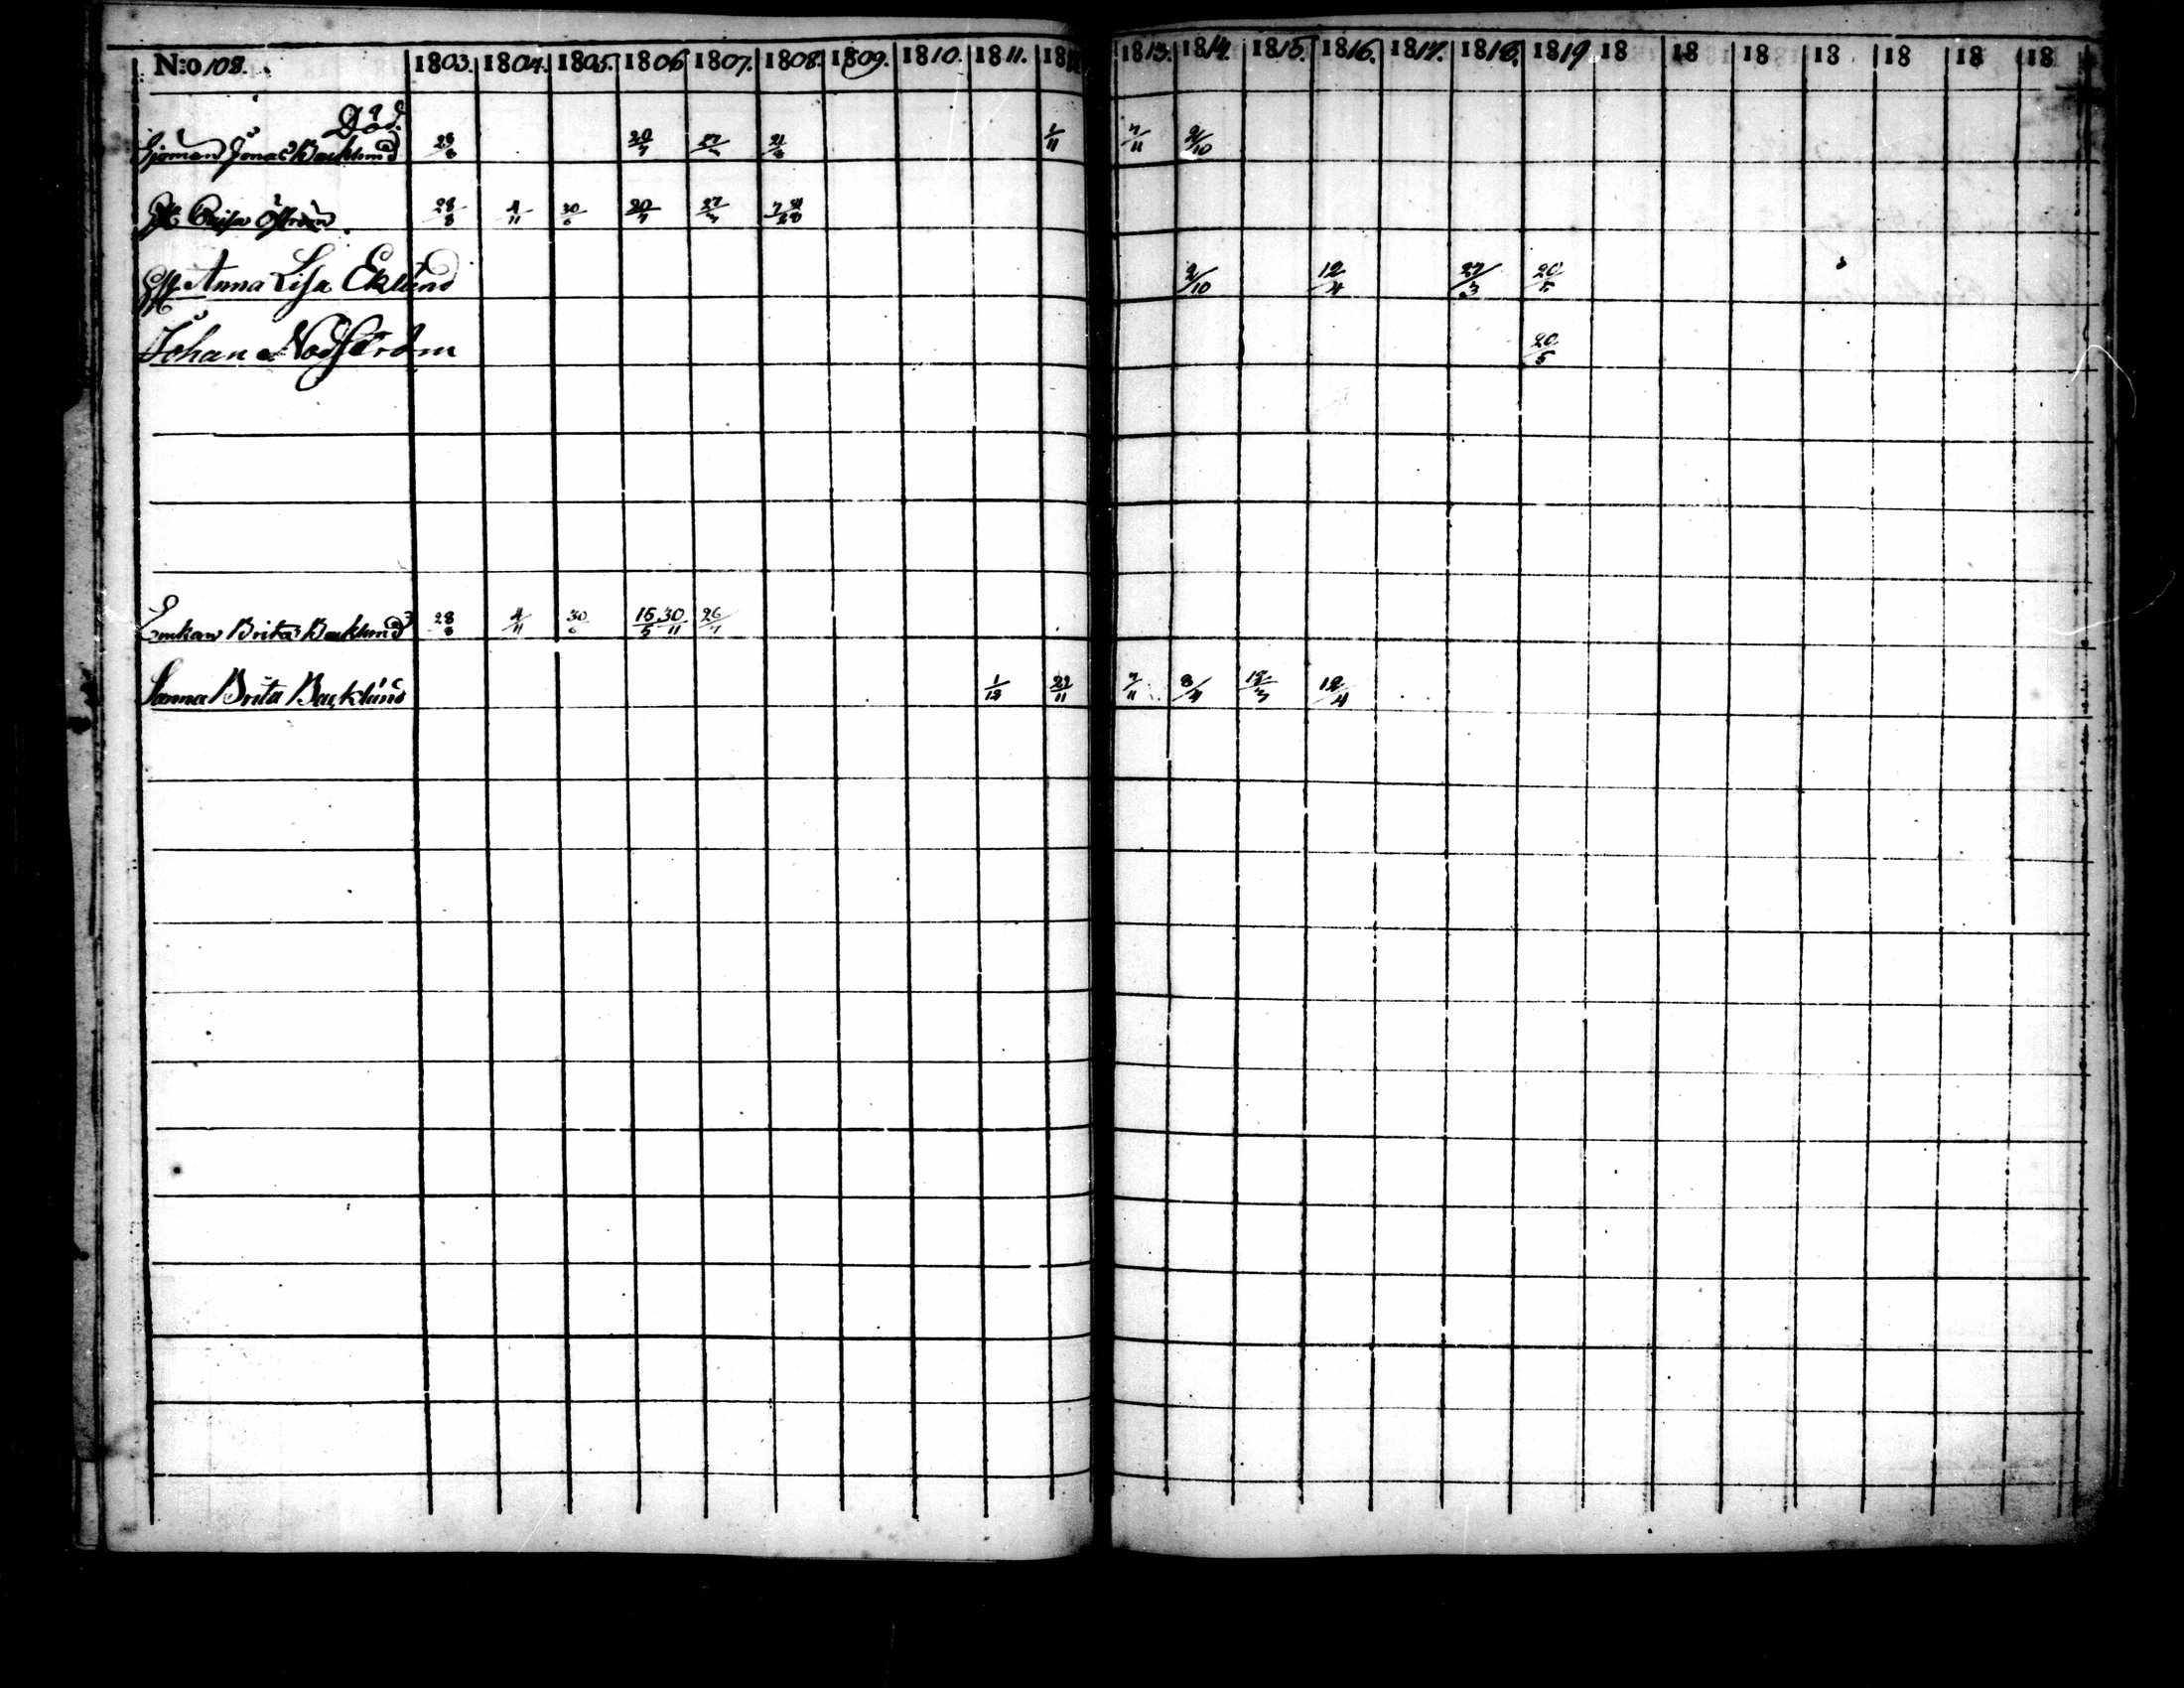 N:o 108. 1803. 1804. 1805. 1806 1807. 1808. 1809. 1810. 1811. 18 1813. 1814. 1815. 1816. 1817. 1818. 1819 18 18 18 18 18 18 18
Död.
Sjöman Jonas Backlund 28/8 20/7 21/8 1/11 7/11 2/10
28/8 4/11 30/6 20/7 27/
Anna Lisa Eklund 2/10 12/4 27/3 20/5
Johan Nodström 20/5
Enkan Brita Backlund 28/8 4/11 30/6 15/5 30/11 26/7
Sanna Brita Backlund 1/12 22/11 7/11 3/4 12/3 12/4